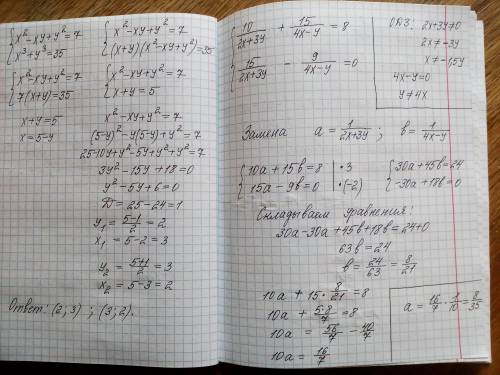 { x² - xy + y² = 7
{ x³ + y³ = 35
{ x² - xy + y² = 7
{ (x+y)(x² - xy + y²) = 35
{ x² - xy + y² = 7
{ 7(x+y) = 35
{ x² - xy + y² = 7
{ x + y = 5
x + y = 5
x = 5 - y
x² - xy + y² = 7
(5-y)² - y(5-y) + y² = 7
25 - 10y + y² - 5y + y² + y² = 7
3y² - 15y + 18 = 0
y² - 5y + 6 = 0
D = 25 - 24 = 1
y₁ = (5-1)/2 = 2
x₁ = 5 - 2 = 3
y₂ = (5+1)/2 = 3
x₂ = 5 - 3 = 2
Ответ: (2; 3) ; (3; 2).
{ 10/(2x+3y) + 15/(4x-y) = 8
{ 15/(2x+3y) - 9/(4x-y) = 0
ОДЗ: 2x+3y≠0
2x ≠ -3y
x ≠ -1,5y
4x - y = 0
y ≠ 4x
Замена a = 1/(2x+3y) ; b = 1/(4x-y)
{ 10a + 15b = 8 | ·3
{ 15a - 9b = 0 | ·(-2)
{ 30a + 45b = 24
{ -30a + 18b = 0
Складываем уравнения:
30a - 30a + 45b + 18b = 24 + 0
63b = 24
b = 24/63 = 8/21
10a + 15 · 8/21 = 8
10a + 5·8/7 = 8
10a = 56/7 - 40/7
10a = 16/7
a = 16/7 · 1/10 = 8/35